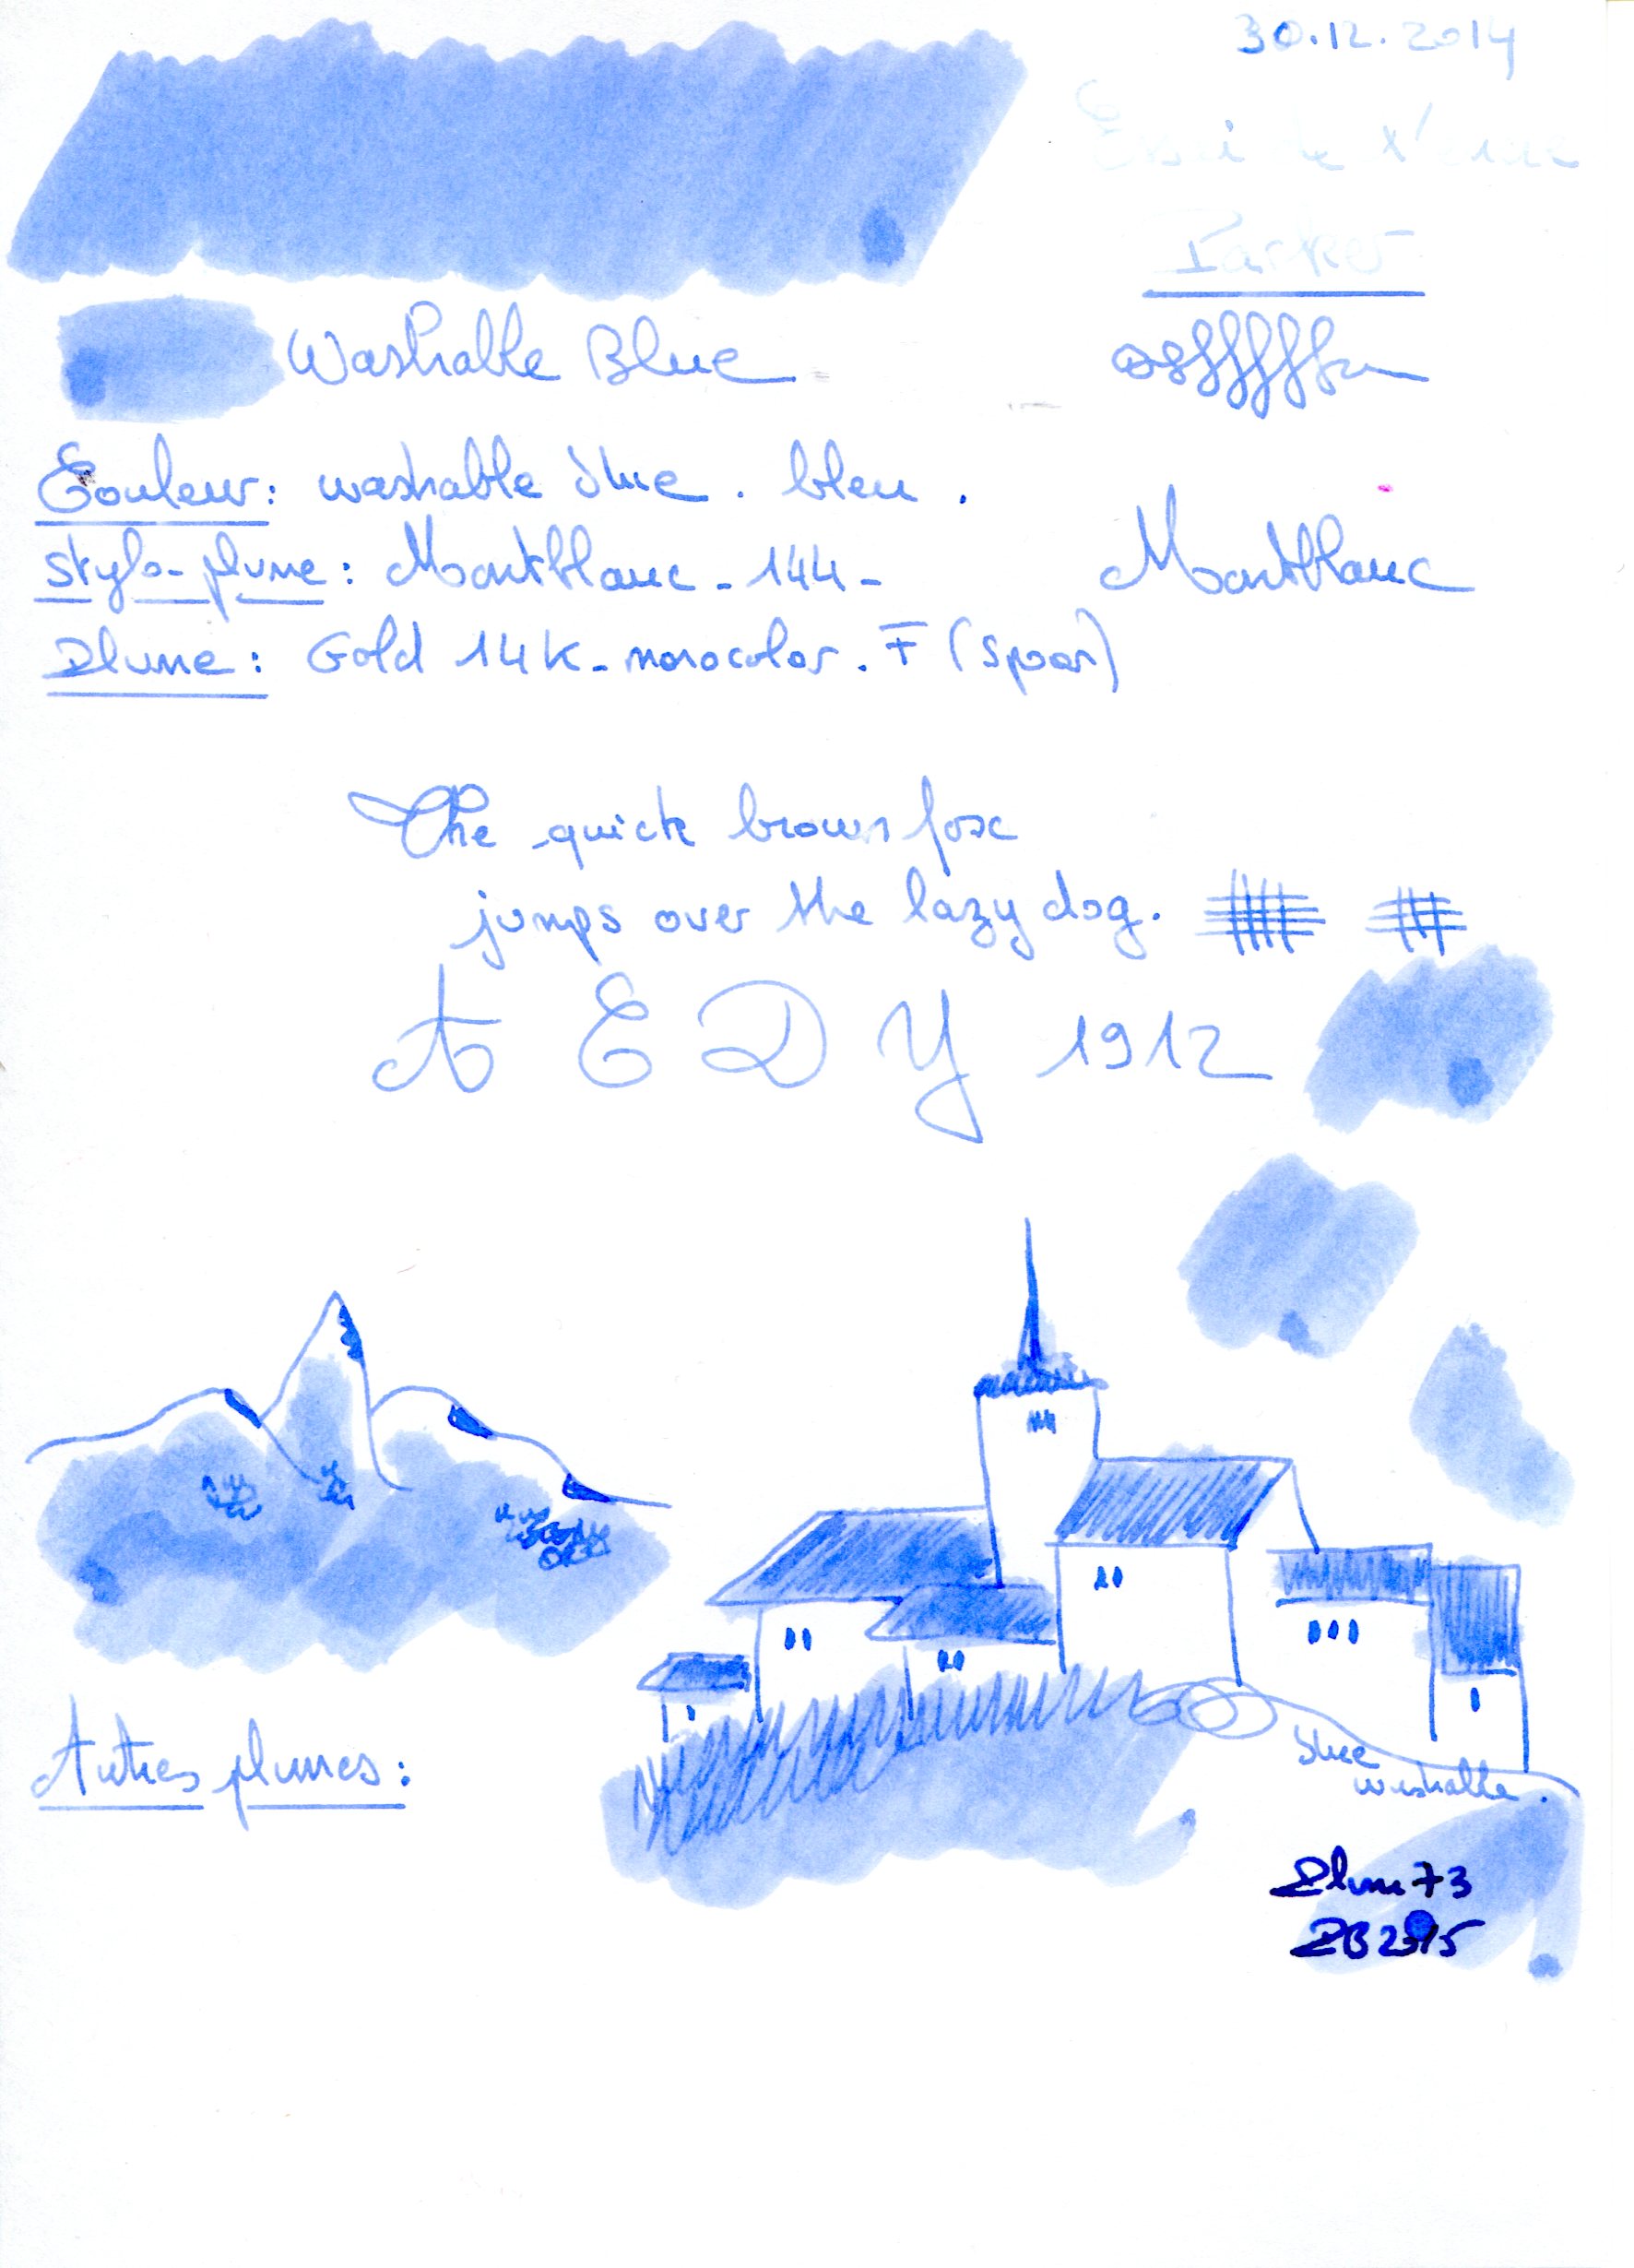 30.12.2014
Essai de l'encre
Parker
Washable Blue
Couleur: washable blue. bleu.
stylo-plume: Montblanc - 144 -
Montblanc
Plume: Gold 14K - monocolor. F (Spoon)
The quick brown fox
jumps over the lazy dog.
A E D Y 1912
Autres plumes:
blue
washable.
Plume73
PB2015